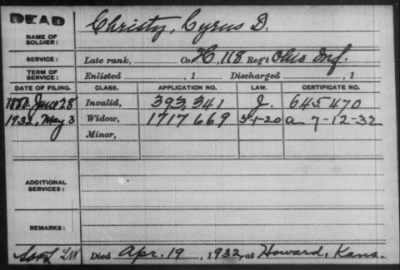 DEAD
NAME OF SOLDIER: Christy, Cyrus D.
SERVICE: Late rank, Co. H, 118 Reg't Ohio Inf.
TERM OF SERVICE: Enlisted , 1 Discharged , 1
DATE OF FILING. CLASS. APPLICATION NO. LAW. CERTIFICATE NO.
1880, June 28 Invalid, 393,341 J. 645470
1932, May 3 Widow, 1717669 5-1-20 a 7-12-32
Minor,
ADDITIONAL SERVICES:
REMARKS:
Died Apr. 19, 1932, at Howard, Kans.